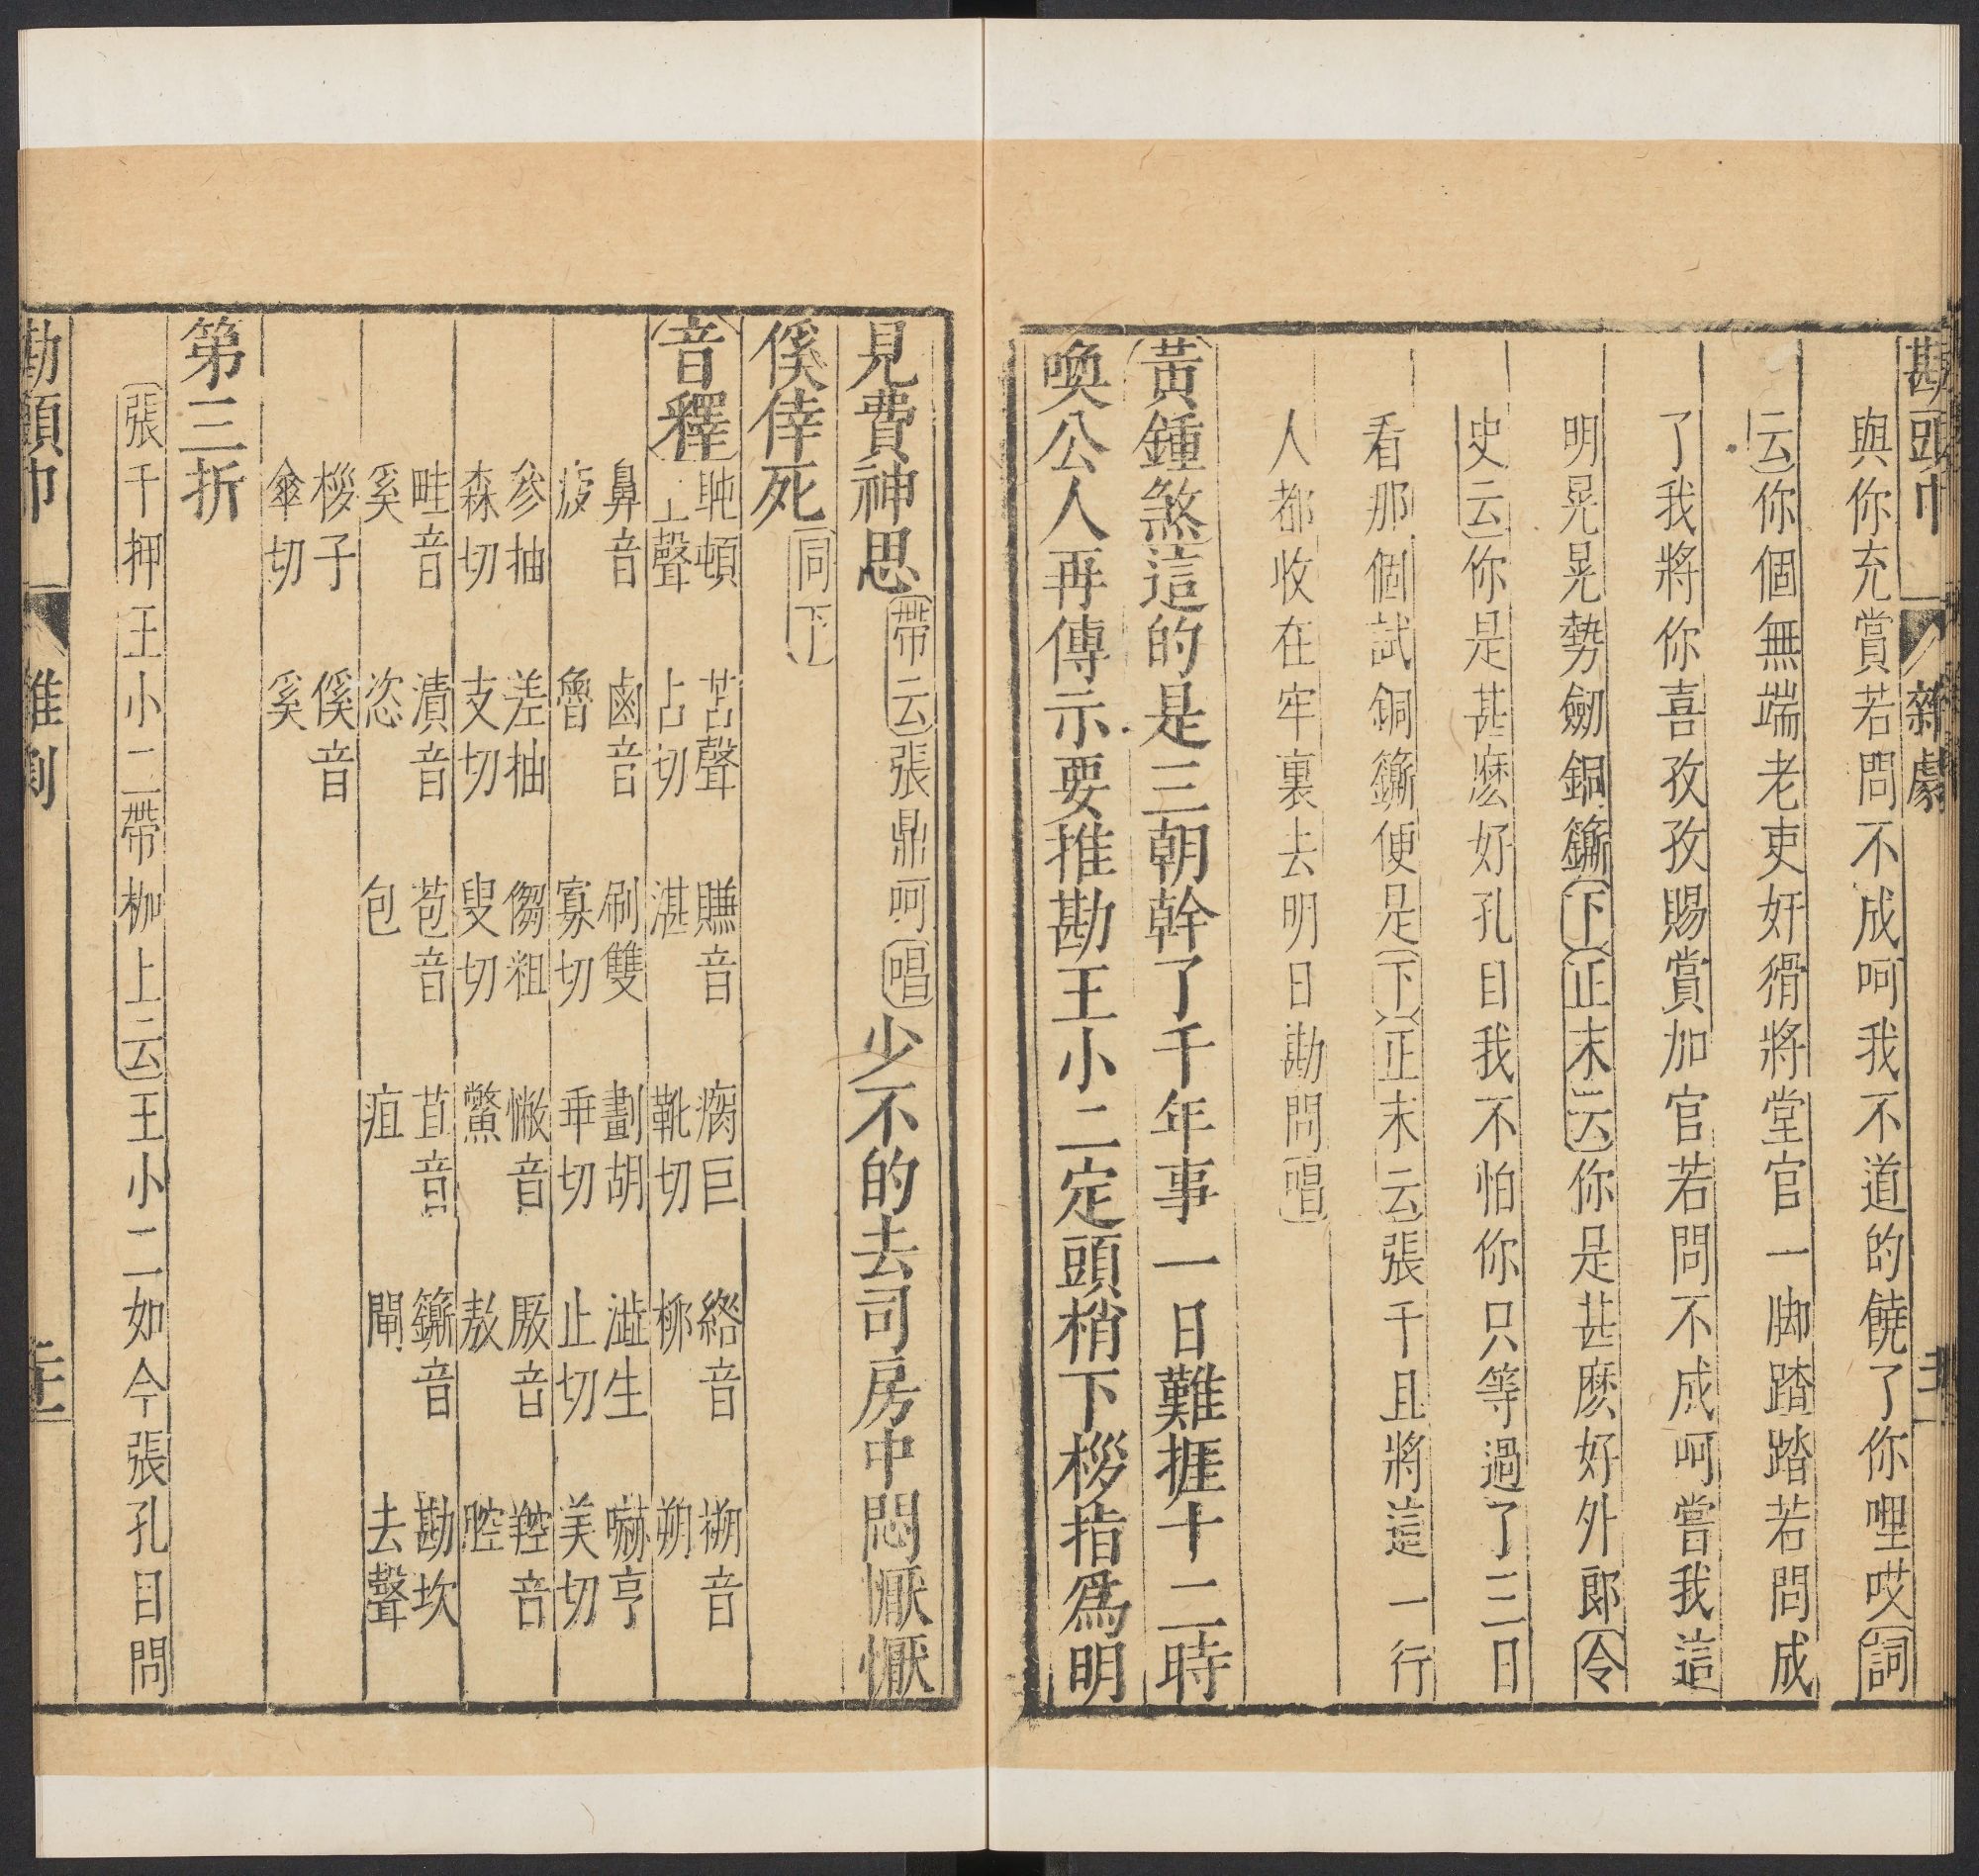 勘頭巾 雜劇
與你充賞若問不成呵我不道的饒了你哩哎詞
云你個無端老吏奸猾將堂官一脚踏踏若問成
了我將你喜孜孜賜賞加官若問不成呵嘗我這
明晃晃勢劒銅鍘下正末云你是甚麽好外郎令
史云你是甚麽好孔目我不怕你只等過了三日
看那個試銅鍘便是下正末云張千且將這一行
人都收在牢裏去明日勘問唱
黃鍾煞這的是三朝幹了千年事一日難捱十二時
喚公人再傳示要推勘王小二定頭梢下桚指爲明
見費神思帶云張鼎呵唱少不的去司房中悶懨懨
傒倖死同下
音釋 盹頓上聲 苫聲占切 賺音湛 瘸巨靴切 綹音柳 搠音朔
鼻音疲 鹵音魯 刷雙寡切 劃胡乖切 澁生止切 嚇亨美切
參抽森切 差抽支切 㑳粗叟切 憋音鱉 厫音敖 䩪音腔
畦音奚 漬音恣 苞音包 苴音疽 鍘音閘 勘坎去聲
桚子傘切 傒音奚
第三折
張千押王小二帶枷上云王小二如今張孔目問
勘頭巾 雜劇